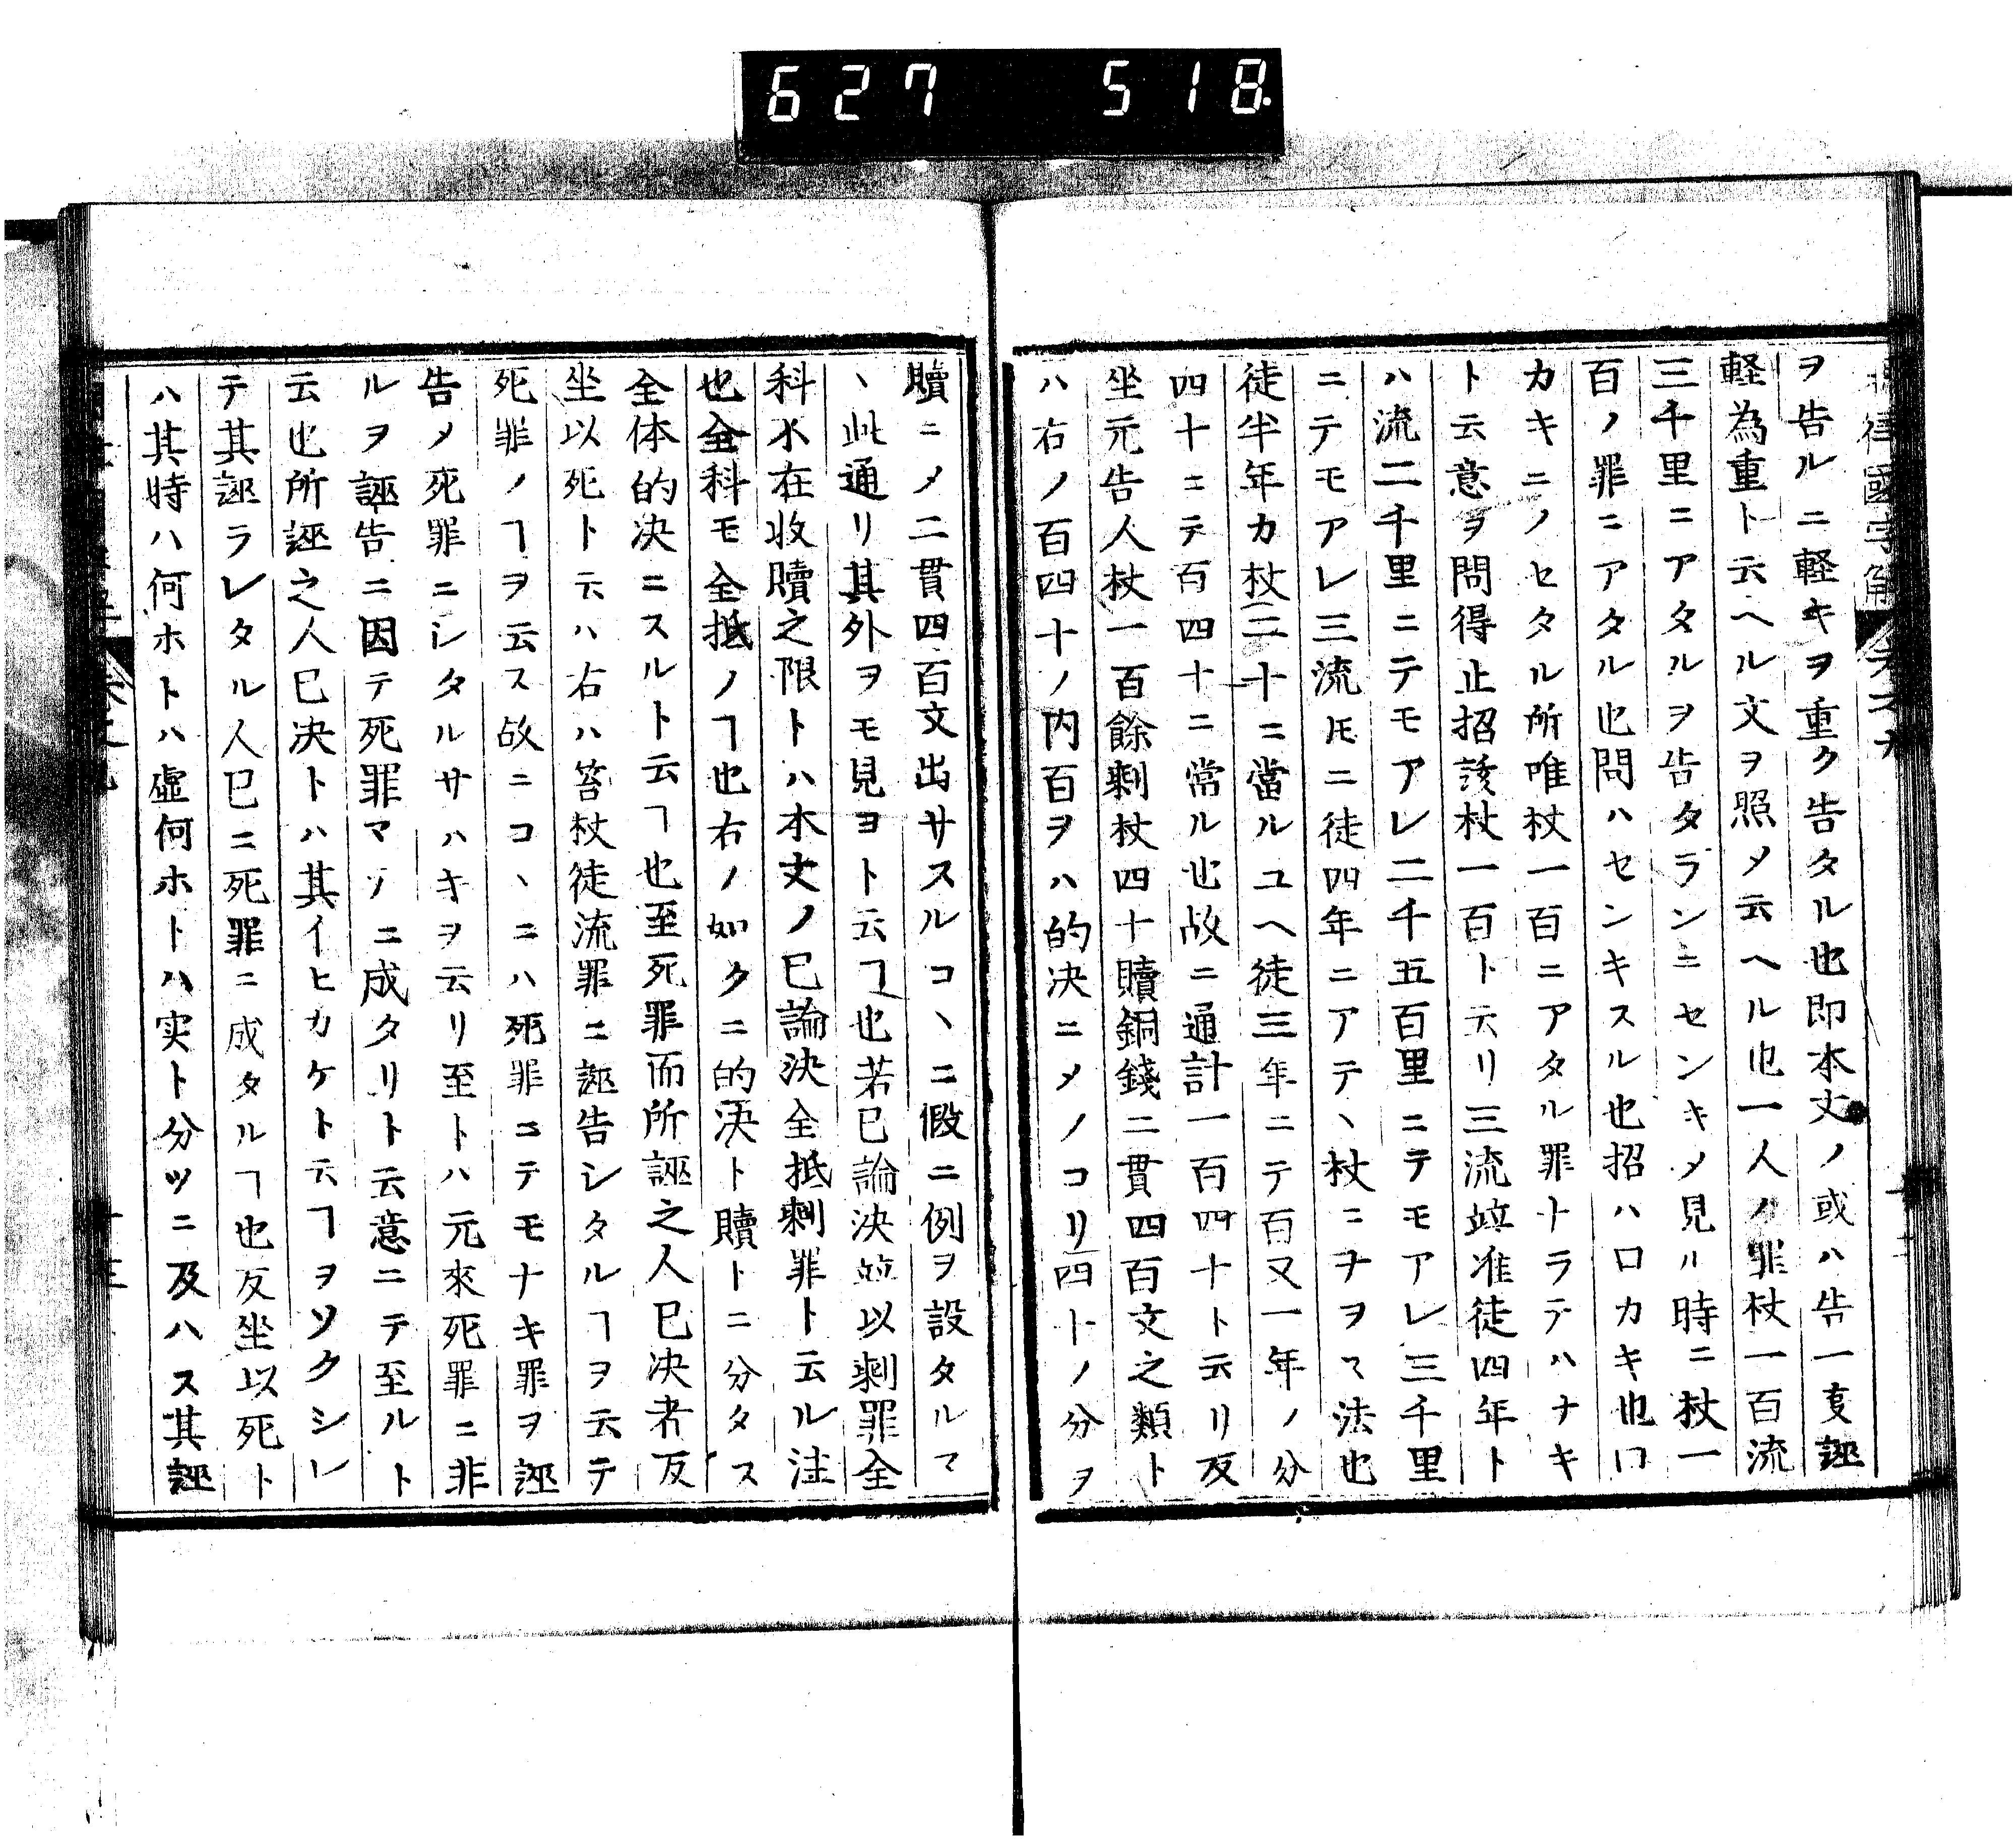 627 518
ヲ告ルニ軽キヲ重ク告タル也即本文ノ或ハ告一叓誣
軽為重ト云ヘル文ヲ照メ云ヘル也一人ノ罪杖一百流
三千里ニアタルヲ告タランニセンキメ見ル時ニ杖一
百ノ罪ニアタル也問ハセンキスル也招ハ口カキ也口
カキニノセタル所唯杖一百ニアタル罪ナラテハナキ
ト云意ヲ問得止招該杖一百ト云リ三流竝准徒四年ト
ハ流二千里ニテモアレ二千五百里ニテモアレ三千里
ニテモアレ三流𪜈ニ徒四年ニアテヽ杖ニナヲス法也
徒半年カ杖二十ニ當ルユヘ徒三年ニテ百又一年ノ分
四十ニテ百四十ニ當ル也故ニ通計一百四十ト云リ反
坐元告人杖一百餘剰杖四十贖銅錢二貫四百文之類ト
ハ右ノ百四十ノ内百ヲハ的決ニメノコリ四十ノ分ヲ
贖ニメ二貫四百文出サスルコヽニ假ニ例ヲ設タルマ
ヽ此通リ其外ヲモ見ヨト云ヿ也若已論決竝以剰罪全
科不在收贖之限トハ本文ノ已論決全抵剰罪ト云ル注
也全科モ全抵ノヿ也右ノ如クニ的決ト贖トニ分タス
全体的決ニスルト云ヿ也至死罪而所誣之人已决者反
坐以死ト云ハ右ハ笞杖徒流罪ニ誣告シタルヿヲ云テ
死罪ノヿヲ云ス故ニコヽニハ死罪ニテモナキ罪ヲ誣
告メ死罪ニシタルサハキヲ云リ至トハ元來死罪ニ非
ルヲ誣告ニ因テ死罪マテニ成タリト云意ニテ至ルト
云也所誣之人已决トハ其イヒカケト云ヿヲソクシレ
テ其誣ラレタル人已ニ死罪ニ成タルヿ也反坐以死ト
ハ其時ハ何ホトハ虚何ホトハ実ト分ツニ及ハス其誣